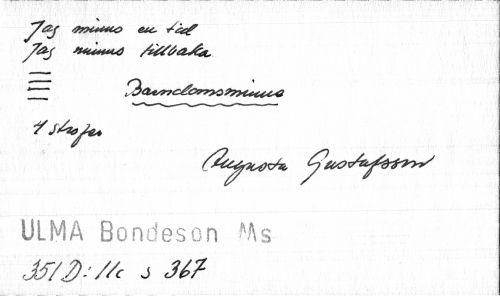 Jag minns en tid
Jag minns tillbaka
Barndomsminns
4 strofer
Augusta Gustafsson
ULMA Bondeson Ms
351 D: 11c s 367